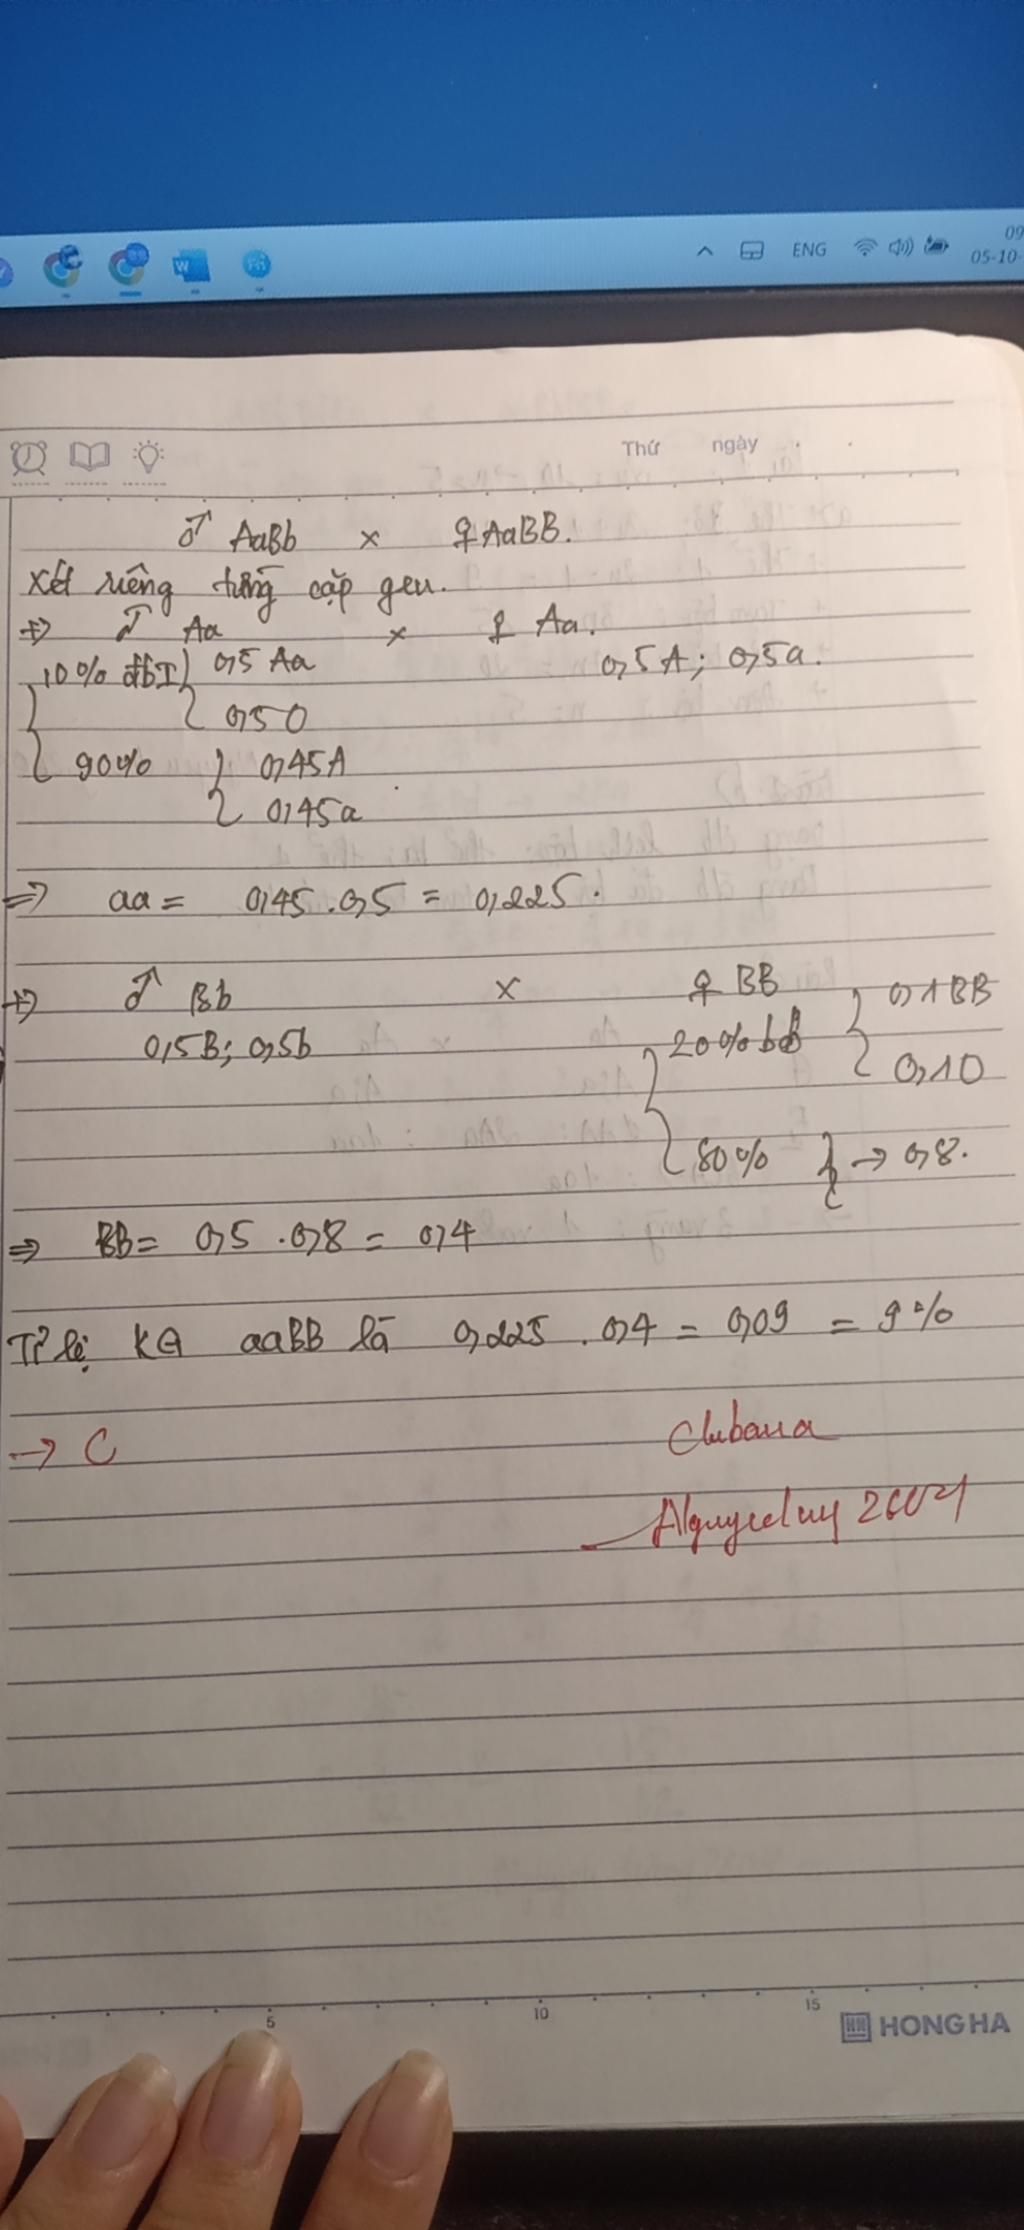 ENG
09
05-10-
Thứ ngày
♂ AaBb × ♀ AaBB.
Xét riêng từng cặp gen.
+) ♂ Aa × ♀ Aa.
10% đbI 0,5 Aa 0,5A; 0,5a.
0,5 0
90% 0,45A
0,45a
=> aa = 0,45.0,5 = 0,225.
+) ♂ Bb × ♀ BB
0,5B; 0,5b 20% 0,1 BB
0,1 0
80% → 0,8.
=> BB = 0,5 . 0,8 = 0,4
Tỉ lệ KG aaBB là 0,225 . 0,4 = 0,09 = 9%
→ C
5 10 15
HONG HA